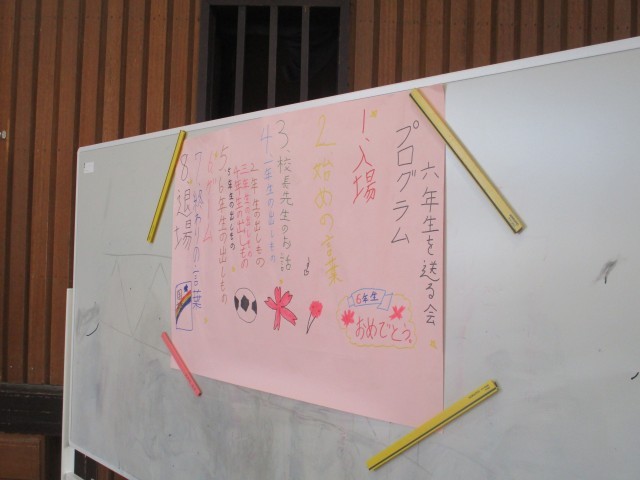 六年生を送る会
プログラム
1、入場
2、始めの言葉
3、校長先生のお話
4、一年生の出しもの
2年生の出しもの
三年生の出しもの
4年生の出しもの
5年生の出しもの
5、6年生の出しもの
6、ゲーム
7、終わりの言葉
8、退場
6年生
おめでとう。